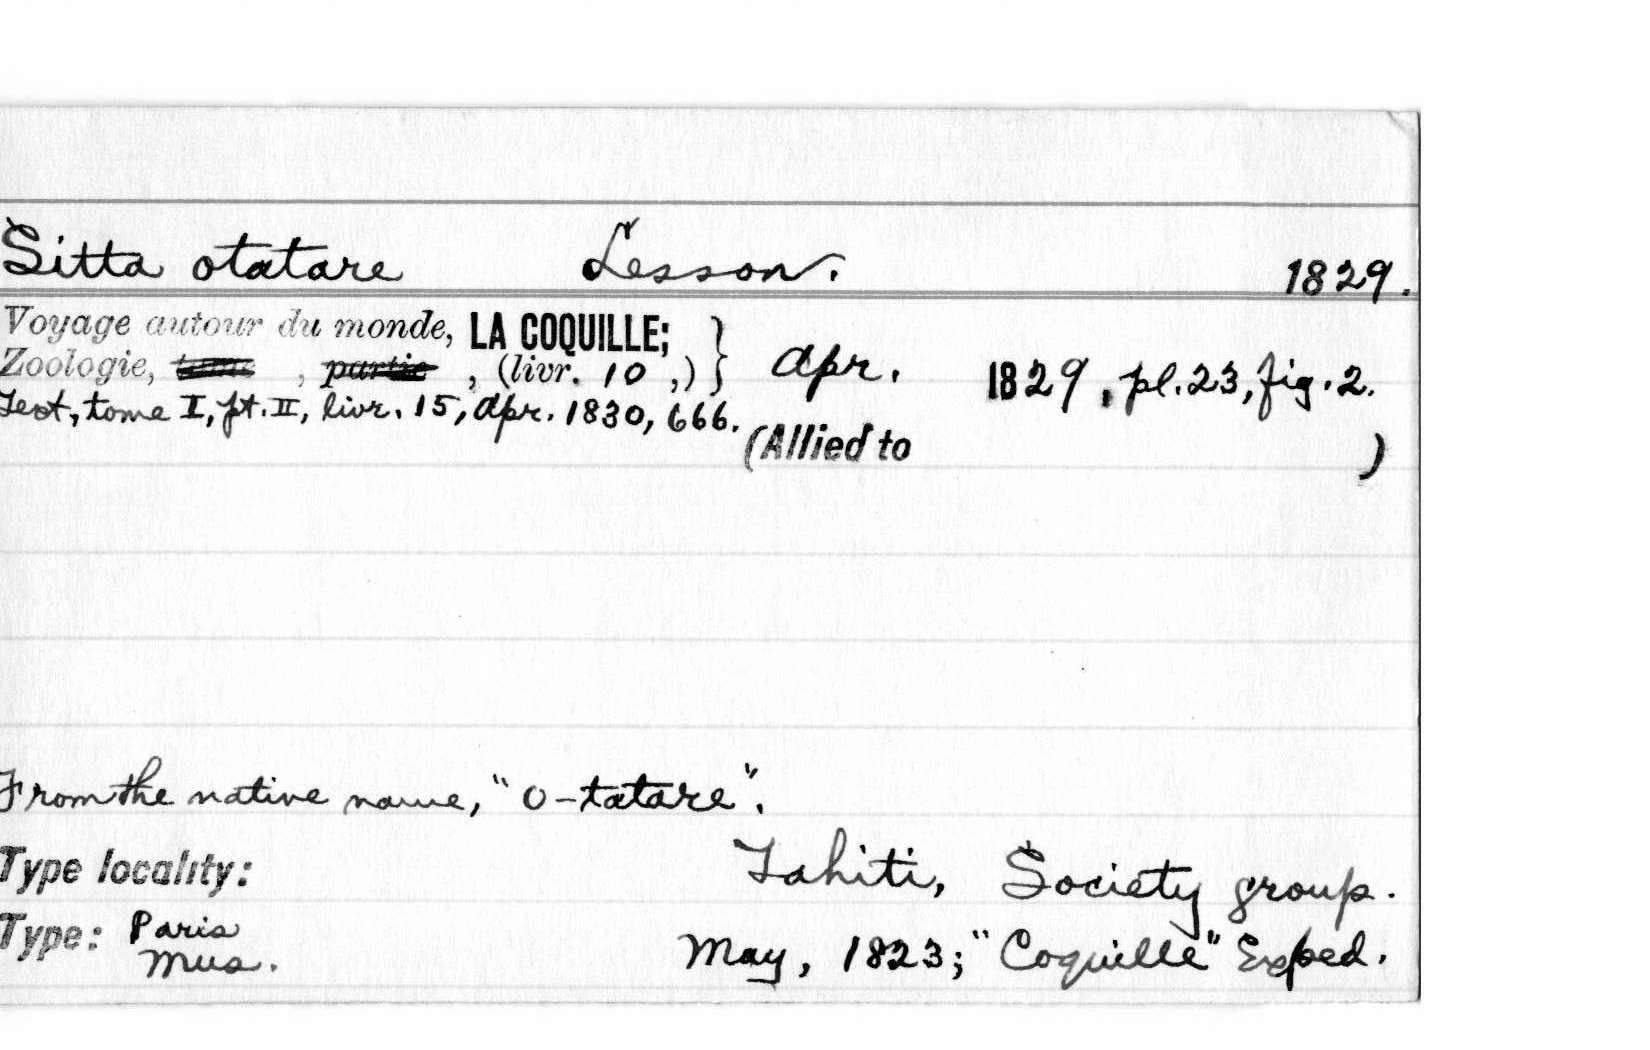 Sitta otatare Lesson. 1829.
Voyage autour du monde, LA COQUILLE;
Zoologie, tome , partie , (livr. 10 ,) } Apr. 1829, pl. 23, fig. 2.
Text, tome I, pt. II, livr. 15, Apr. 1830, 666.
(Allied to )
From the native name, "o-tatare".
Type locality: Tahiti, Society group.
Type: Paris
Mus. May, 1823; "Coquille" Exped.